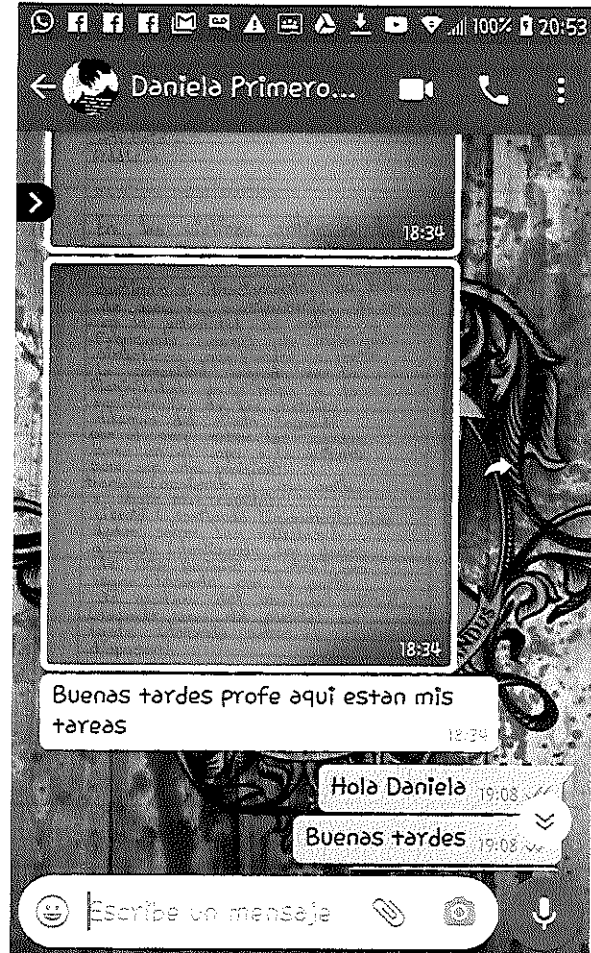 100% 20:53
Daniela Primero...
18:34
18:34
Buenas tardes profe aqui estan mis
tareas
18:34
Hola Daniela 19:08
Buenas tardes 19:08
Escribe un mensaje